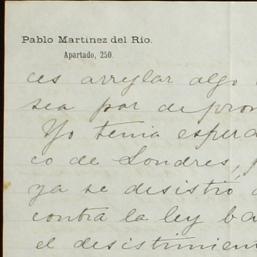 Pablo Martinez del Rio.
Apartado, 250.
ces arreglar algo
sea por de pron
Yo tenia espera
co de Londres,
ya se desistió
contra la ley ba
el desistimien